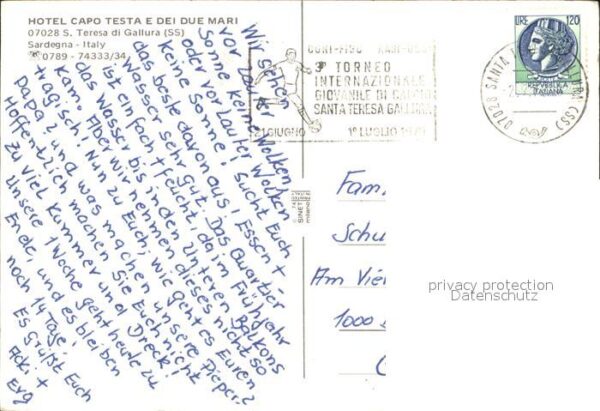 HOTEL CAPO TESTA E DEI DUE MARI
07028 S. Teresa di Gallura (SS)
Sardegna - Italy
0789 - 74333/34
Wir sehen
vor lauter Wolken
keine Sonne
oder vor lauter
Sonne keine Wolken
sucht Euch
das beste davon aus! Essen +
Wasser sehr gut. Das Quartier
ist einfach + feucht, da im Frühjahr
das Wasser bis in den unteren Balkons
kam. Aber wir nehmen dieses nicht so
tragisch! Nun zu Euch, wie geht es Euren
Papa? und was machen unsere Pieper?
Hoffentlich machen Sie Euch nicht
zu viel Kummer und Dreck!
Unsere 1 Woche geht heute zu
Ende, und es bleiben
noch 14 Tage!
Es grüßt Euch
3° TORNEO
INTERNAZIONALE
GIOVANILE DI CALCIO
SANTA TERESA GALLURA
21 GIUGNO 1° LUGLIO
LIRE 120
REPUBBLICA
ITALIANA
07028 SANTA (SS)
Fam.
Schu
Am Vie
1000
privacy protection
Datenschutz